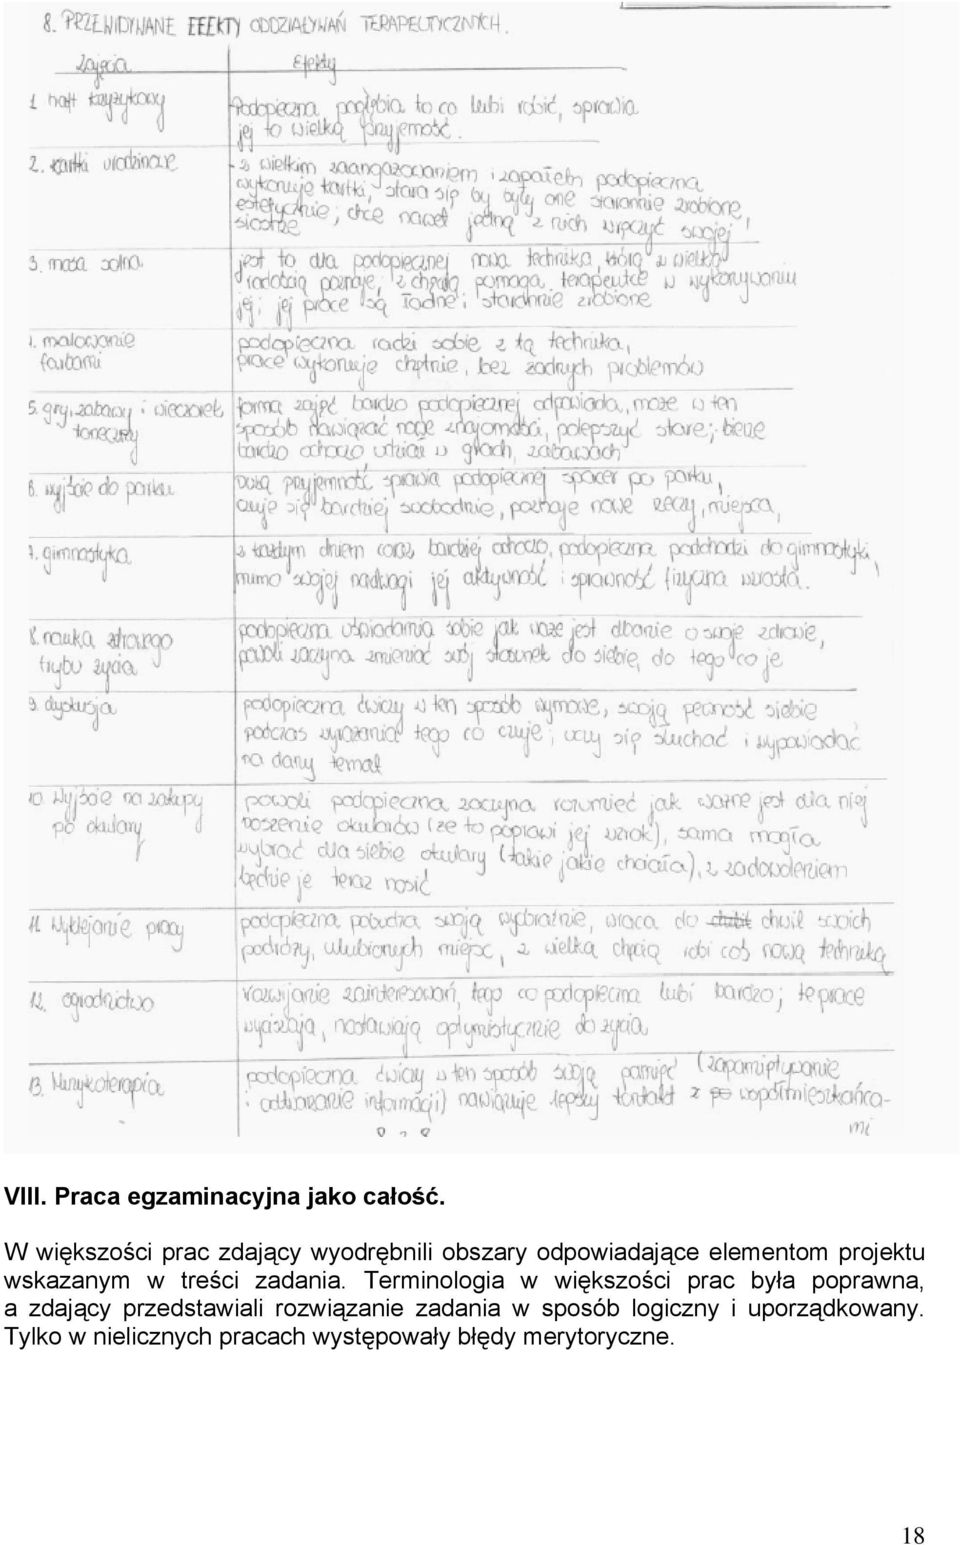 8. PRZEWIDYWANE EFEKTY ODDZIAŁYWAŃ TERAPEUTYCZNYCH.
Zajęcia Efekty
1 haft krzyżykowy
Podopieczna pogłębia to co lubi robić, sprawia
jej to wielką przyjemość.
2. kartki urodzinowe
z wielkim zaangażowaniem i zapałem podopieczna
wykonuje kartki, stara się by były one starannie zrobione,
estetycznie; chce nawet jedną z nich wręczyć swojej
siostrze
3. masa solna
jest to dla podopiecznej nowa technika, którą z wielką
radością poznaje, z chęcią pomaga terapeutce w wykonywaniu
jej; jej prace są ładne i starannie zrobione
4. malowanie
farbami
podopieczna radzi sobie z tą techniką,
prace wykonuje chętnie, bez żadnych problemów
5. gry, zabawy i wieczorek
taneczny
forma zajęć bardzo podopiecznej odpowiada, może w ten
sposób nawiązać nowe znajomości, polepszyć stare; bierze
bardzo ochoczo udział w grach, zabawach
6. wyjście do parku
Dużą przyjemność sprawia podopiecznej spacer po parku,
czuje się bardziej swobodnie, poznaje nowe rzeczy, miejsca,
7. gimnastyka
z każdym dniem coraz bardziej ochoczo, podopieczna podchodzi do gimnastyki,
mimo swojej nadwagi jej aktywność i sprawność fizyczna wzrasta.
8. nauka zdrowego
trybu życia
podopieczna uświadamia sobie jak ważne jest dbanie o swoje zdrowie,
powoli zaczyna zmieniać swój stosunek do siebie, do tego co je
9. dyskusja
podopieczna ćwiczy w ten sposób wymowę, swoją pewność siebie
podczas wyrażania tego co czuje; uczy się słuchać i wypowiadać
na dany temat
10. Wyjście na zakupy
po okulary
powoli podopieczna zaczyna rozumieć jak ważne jest dla niej
noszenie okularów (że to poprawi jej wzrok), sama mogła
wybrać dla siebie okulary (takie jakie chciała), z zadowoleniem
będzie je teraz nosić
11. Wyklejanie pracy
podopieczna pobudza swoją wyobraźnię, wraca do chwil swoich
podróży, ulubionych miejsc, z wielką chęcią robi coś nową techniką
12. ogrodnictwo
rozwijanie zainteresowań, tego co podopieczna lubi bardzo; te prace
wyciszają, nastawiają optymistycznie do życia
13. Muzykoterapia
podopieczna ćwiczy w ten sposób swoją pamięć (zapamiętywanie
i odtwarzanie informacji) nawiązuje lepszy kontakt z współmieszkańca-
mi
VIII. Praca egzaminacyjna jako całość.
W większości prac zdający wyodrębnili obszary odpowiadające elementom projektu
wskazanym w treści zadania. Terminologia w większości prac była poprawna,
a zdający przedstawiali rozwiązanie zadania w sposób logiczny i uporządkowany.
Tylko w nielicznych pracach występowały błędy merytoryczne.
18